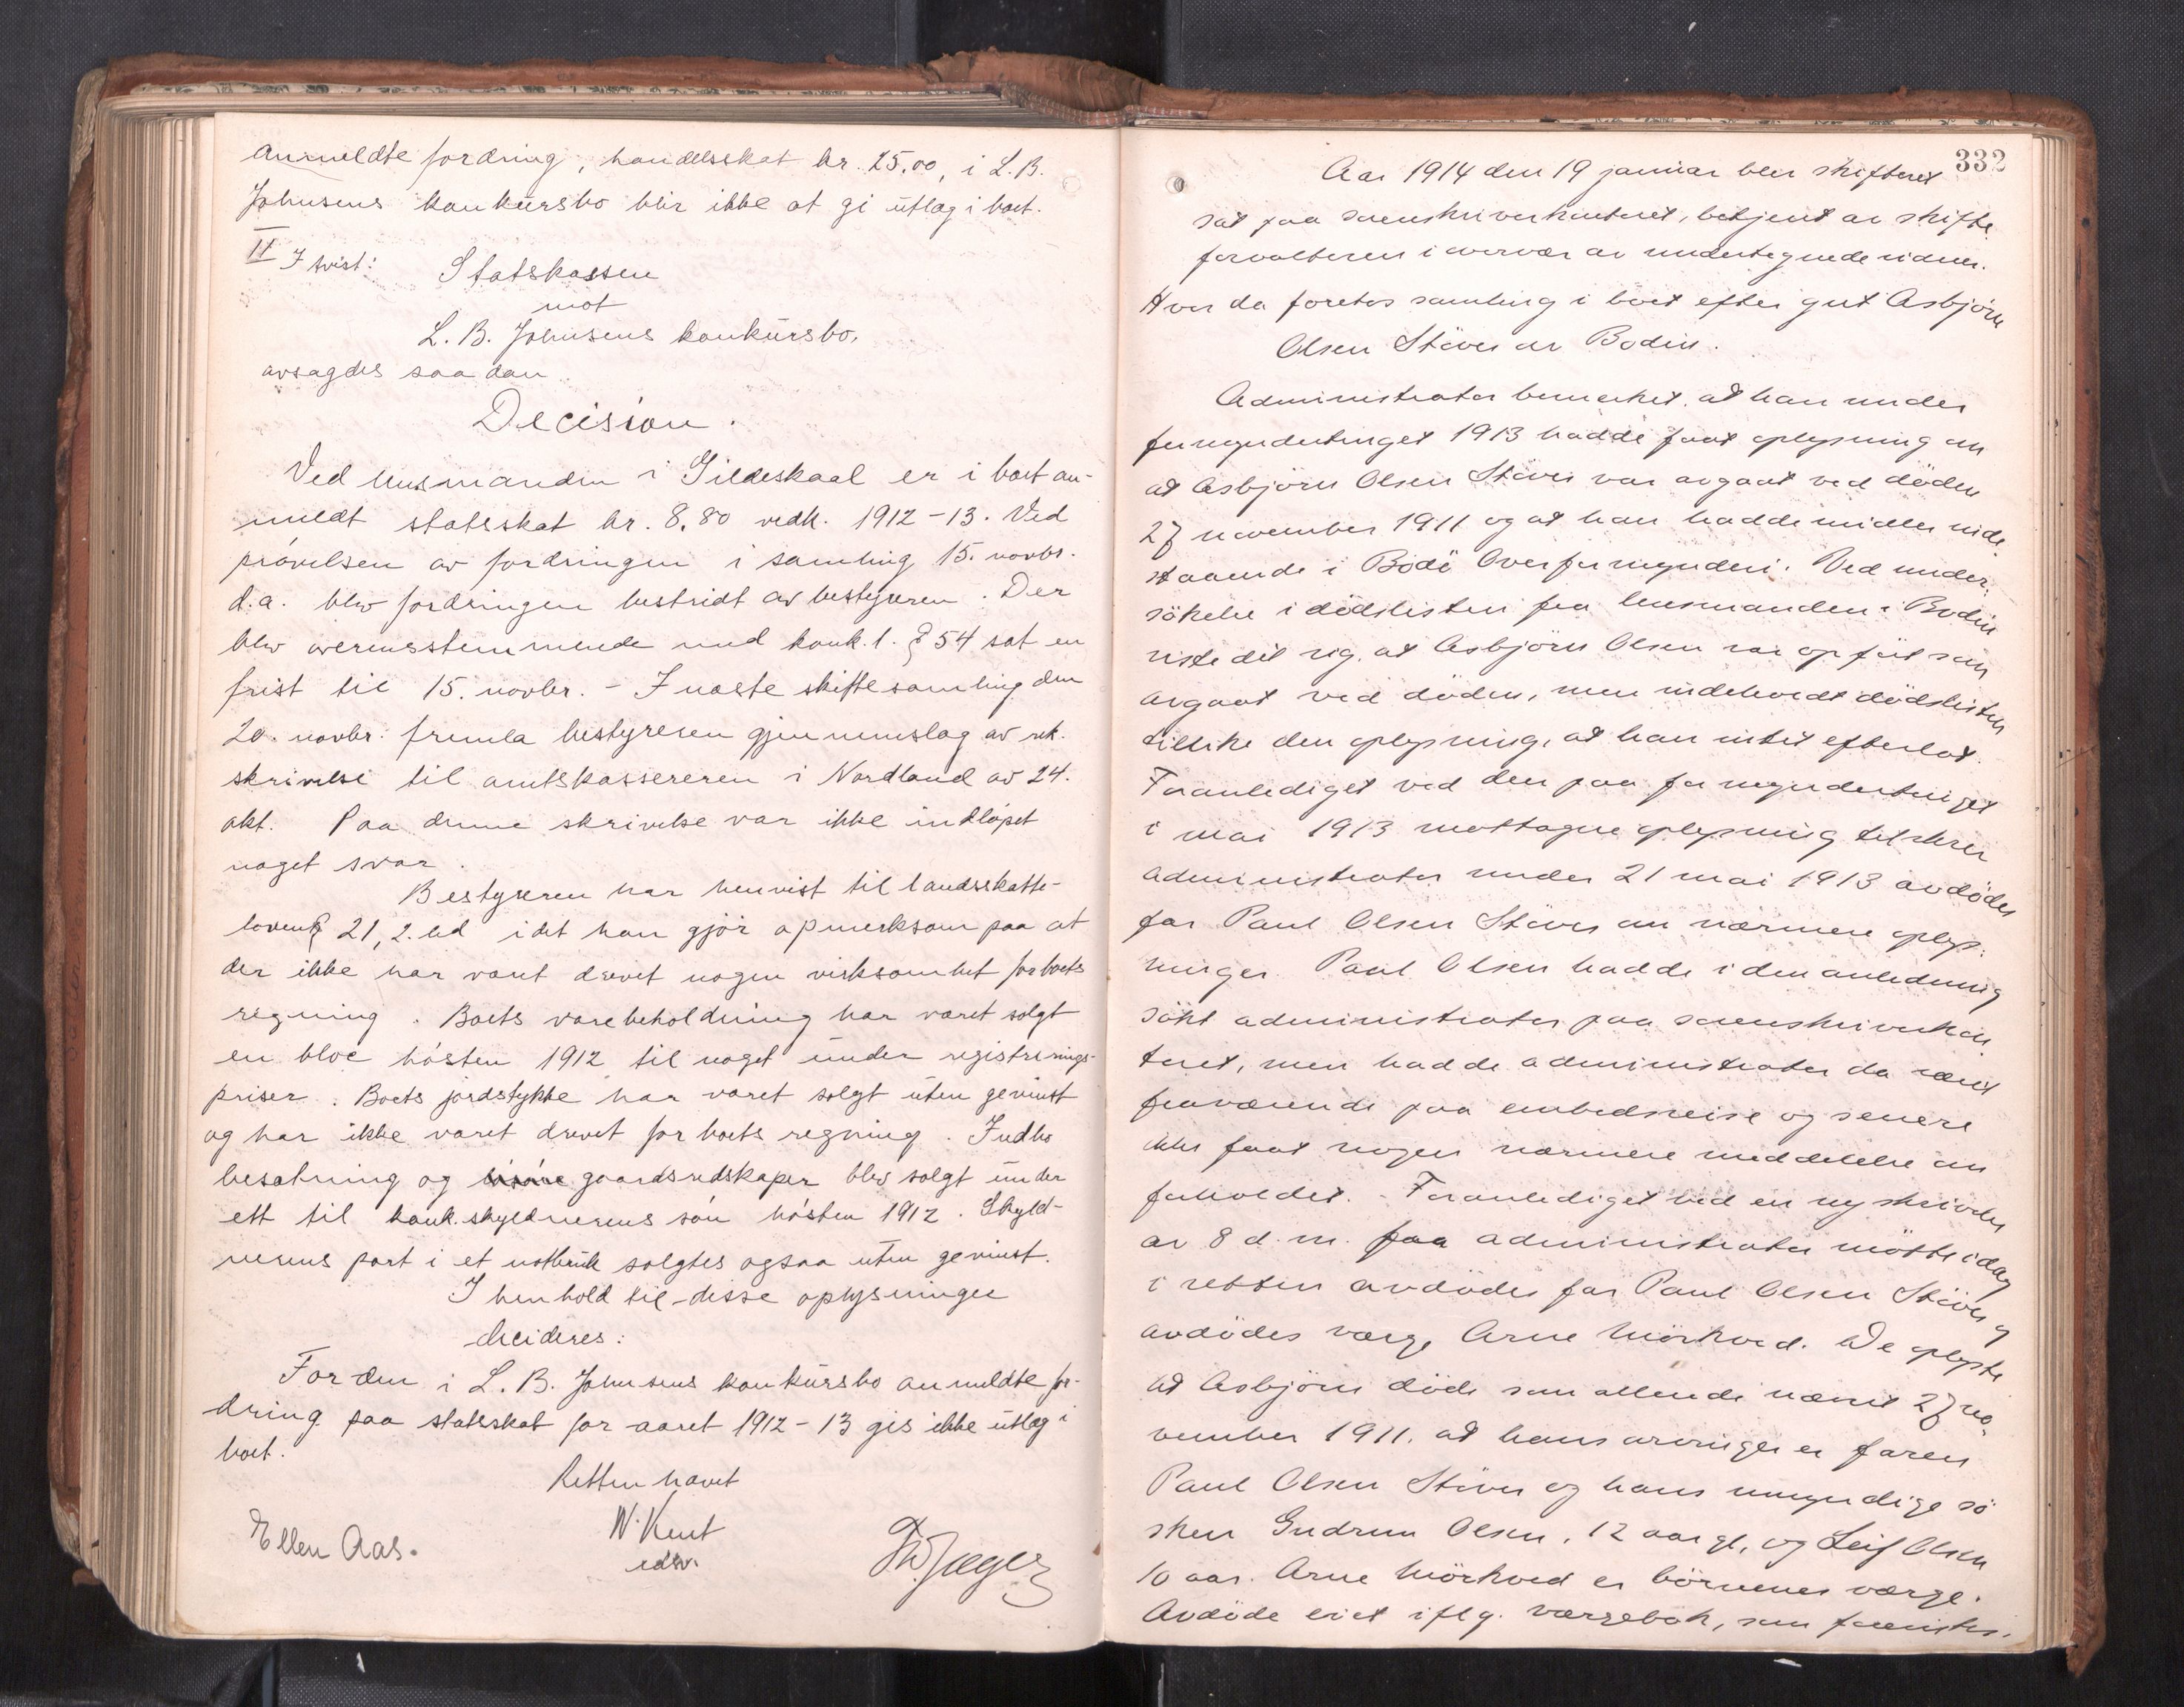 anmeldte fordring, handelsskat kr. 25.00, i L. B.
Johnsens konkursbo blir ikke at gi utlæg i boet.
II I tvist: Statskassen
mot
L. B. Johnsens konkursbo,
avsagdes saadan
Decision.
Ved lensmanden i Gildeskaal er i boet an-
meldt statsskat kr. 8,80 vedk. 1912-13. Ved
prøvelsen av fordringen i samling 15. novbr.
d.a. blev fordringen bestridt av bestyreren. Der
blev overensstemmende med konk. l. § 54 sat en
frist til 15. novbr. - I næste skiftesamling den
20. novbr. fremla bestyreren gjennemslag av rek.
skrivelse til amtskassereren i Nordland av 24.
okt. Paa denne skrivelse var ikke indløpet
noget svar.
Bestyreren har henvist til landsskatte-
lovens § 21, 2. led idet han gjør opmerksom paa at
der ikke har været drevet nogen virksomhet for boets
regning. Boets varebeholdning har været solgt
en bloc høsten 1912 til noget under registrerings-
priser. Boets jordstykke har været solgt uten gevinst
og har ikke været drevet for boets regning. Indbo
besætning og gaardsredskaper blev solgt under
ett til konk.skyldnerens søn høsten 1912. Skyld-
nerens part i et notbruk solgtes ogsaa uten gevinst.
I henhold til disse oplysninger
decideres:
For den i L. B. Johnsens konkursbo anmeldte for-
dring paa statsskat for aaret 1912-13 gis ikke utlæg i
boet.
Retten hævet
Ellen Aas. N. Kent Th. Jæger
edsv.
332
Aar 1914 den 19 januar blev skifteret
sat paa sorenskriverkontoret, betjent av skifte-
forvalteren i overvær av undertegnede vidner.
Hvor da foretos samling i boet efter gut Asbjörn
Olsen Stöver av Bodin.
Administrator bemerket, at han under
formyndertinget 1913 hadde faat oplysning om
at Asbjörn Olsen Stöver var avgaat ved döden
27 november 1911 og at han hadde midler inde-
staaende i Bodö Overformynderi. Ved under-
sökelse i dödslisten fra lensmanden i Bodin
viste det sig, at Asbjörn Olsen var opfört som
avgaat ved döden, men indeholdt dödslisten
tillike den oplysning, at han intet efterlot.
Foranlediget ved den paa formyndertinget
i mai 1913 mottagne oplysning tilskrev
administrator under 21 mai 1913 avdödes
far Paul Olsen Stöver om nærmere oplys-
ninger. Paul Olsen hadde i den anledning
sökt administrator paa sorenskriverkon-
toret, men hadde administrator da været
fraværende paa embedsreise og senere
ikke faat nogen nærmere meddelelse om
forholdet. - Foranlediget ved en ny skrivelse
av 8 d.m. fra administrator mötte idag
i retten avdödes far Paul Olsen Stöver og
avdödes værge Arne Mörkved. De oplyste
at Asbjörn döde som allerede nævnt 27 no-
vember 1911, at hans arvinger er faren
Paul Olsen Stöver og hans umyndige sö-
sken Gudrun Olsen, 12 aar gl, og Leif Olsen
10 aar. Arne Mörkved er börnenes værge.
Avdöde eiet iflg. værgebok, som forevistes.